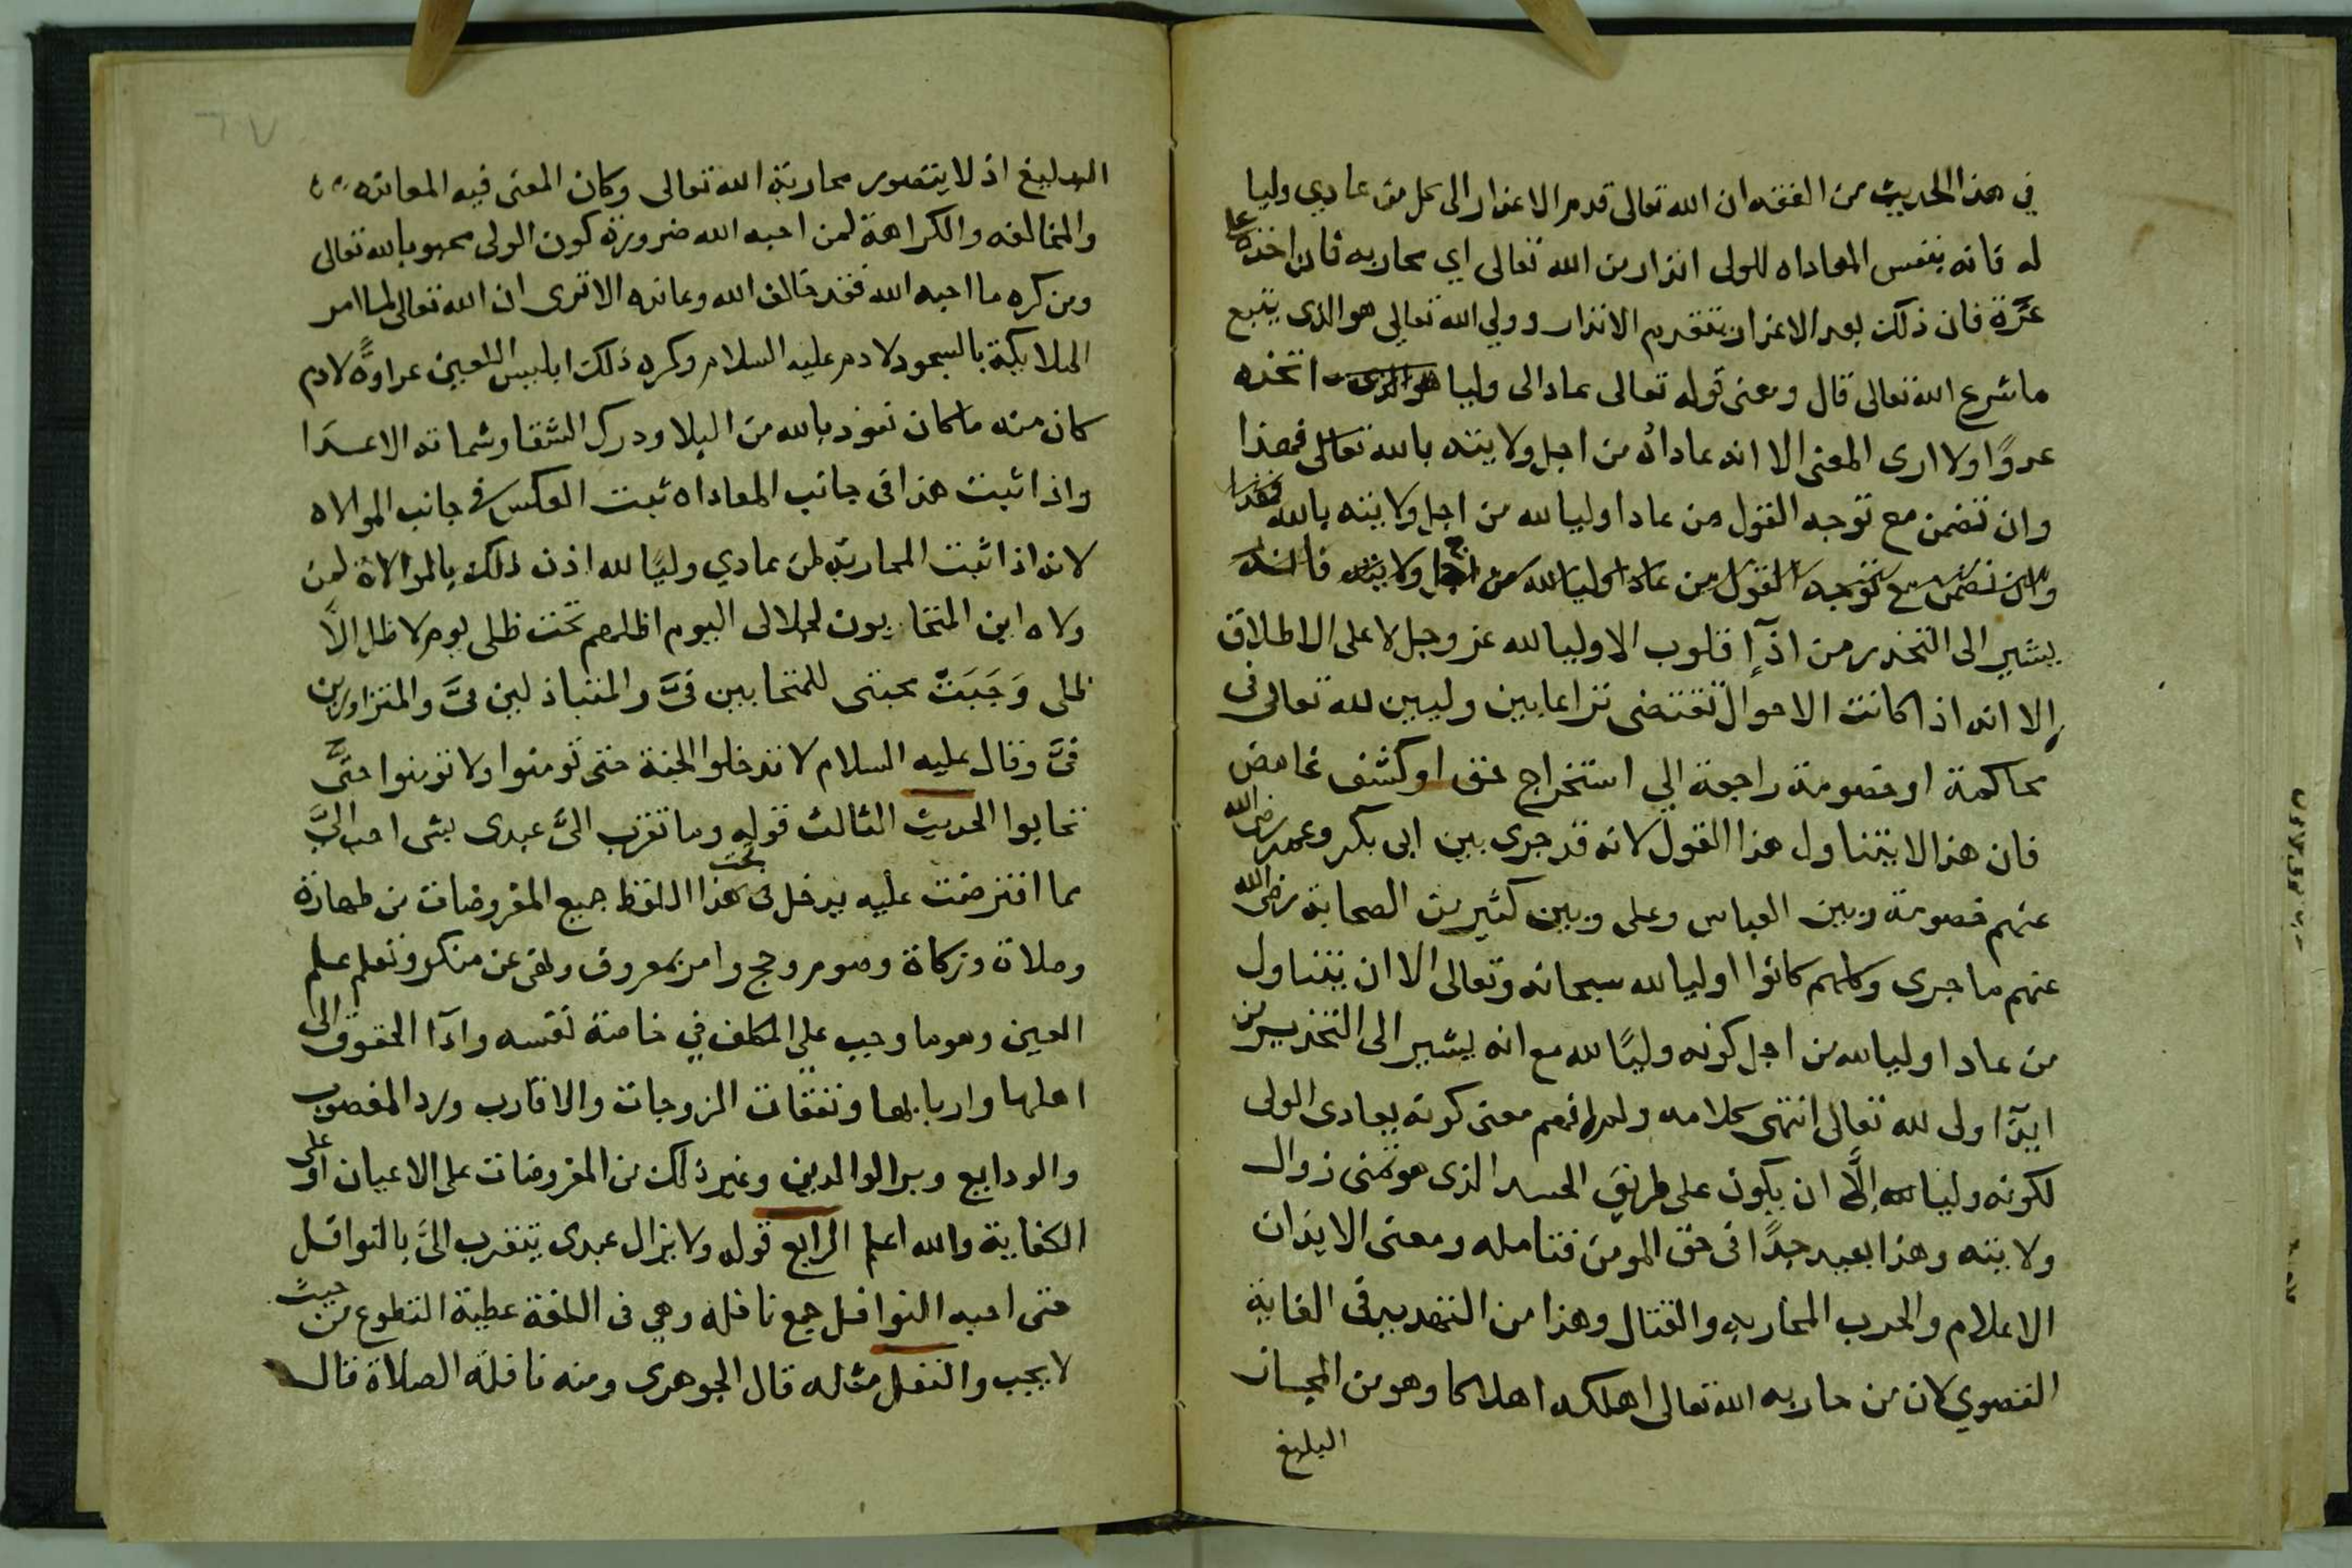 في هذا الحديث من الفقه ان الله تعالى قدم الاعذار الى كل من عادي وليا
له فانه بنفس المعاداه للولى انذار من الله تعالى اي محاربه فان اخذه على
غرّة فان ذلك بعد الاعذار بتقديم الانذار وولي الله تعالي هو الذى يتبع
ما شرع الله تعالى قال ومعنى قوله تعالى عاد الى وليا هو الذى اتخذه
عدوًا ولا ارى المعنى الا انه عاداه من اجل ولايته بالله تعالى فهذا
وان تضمن مع توجه القول من عادا وليا لله من اجل ولايته بالله فهذا
وان تضمن مع توجه القول من عادا وليا لله من اجل ولايته فانه
يشير الى التحذير من اذآإ قلوب الاوليا لله عز وجل لا على الاطلاق
إلا انه اذا كانت الاحوال تقتضى نزاعا بين وليين لله تعالى فى
محاكمة او خصومة راجعة الي استخراج حق او كشف غامض
فان هذا لا يتناول هذا القول لانه قد جرى بين ابى بكر وعمر رضي الله
عنهم خصومة وبين العباس وعلى وبين كثير من الصحابة رضي الله
عنهم ما جرى وكلهم كانوا اوليا لله سبحانه وتعالى الا ان يتناول
من عادا وليا لله من اجل كونه وليًا لله مع انه يشير الى التحذير من
ايذآ اولى لله تعالى انتهى كلامه ولم افهم معنى كونه يعادى الولى
لكونه وليا لله إلَّا ان يكون على طريق الحسد الذى هو تمنى زوال
ولايته وهذا بعيد جدًا فى حق المومن فتامله ومعنى الايذان
الاعلام والحرب المحاربه والقتال وهذا من التهديد فى الغاية
القصوي لان من حاربه الله تعالى اهلكه اهلاكا وهو من المجاز
البليغ
٦٧
البليغ اذ لا يتصور محاربة الله تعالى وكان المعنى فيه المعانده
والمخالفه والكراهة لمن احبه الله ضرورة كون الولى محبوبا لله تعالى
ومن كره ما احبه الله فقد خالف الله وعانده الا ترى ان الله تعالى لما امر
الملايكة بالسجود لادم عليه السلام وكره ذلك ابليس اللعين عداوةً لادم
كان منه ما كان نعوذ بالله من البلا ودرك الشقا وشماته الاعدَا
واذا ثبت هذا فى جانب المعاداه ثبت العكس فى جانب الموالاه
لانه اذا ثبت المحاربة لمن عادي وليًا لله اذن ذلك بالموالاة لمن
ولاه اين المتحابون لجلالى اليوم اظلهم تحت ظلى يوم لا ظل إلاَّ
ظلى وَجَبَتْ محبتى للمتحابين فىَّ والمتباذلين فىَّ والمتزاورين
فىَّ وقال عليه السلام لا تدخلوا الجنة حتى تومنوا ولا تومنوا حتىَّ
تحابوا الحديث الثالث قوله وما تقرب الىَّ عبدى بشى احب الىَّ
مما افترضت عليه يدخل فى تحت هذا اللفظ جميع المفروضات من طهارة
وصلاة وزكاة وصوم وحج وامر بمعروف ونهى عن منكر وتعلم علم
العين وهو ما وجب علي المكلف في خاصة نفسه وادآ الحقوق الى
اهلها واربابها ونفقات الزوجات والاقارب ورد المغصوب
والودايع وبر الوالدين وغير ذلك من المفروضات على الاعيان او على
الكفاية والله اعلم الرابع قوله ولا يزال عبدى يتقرب الىَّ بالنوافل
حتى احبه النوافل جمع نافلة وهي فى اللغة عطية التطوع من حيث
لا يجب والنفل مثله قال الجوهرى ومنه نافلة الصلاة قال